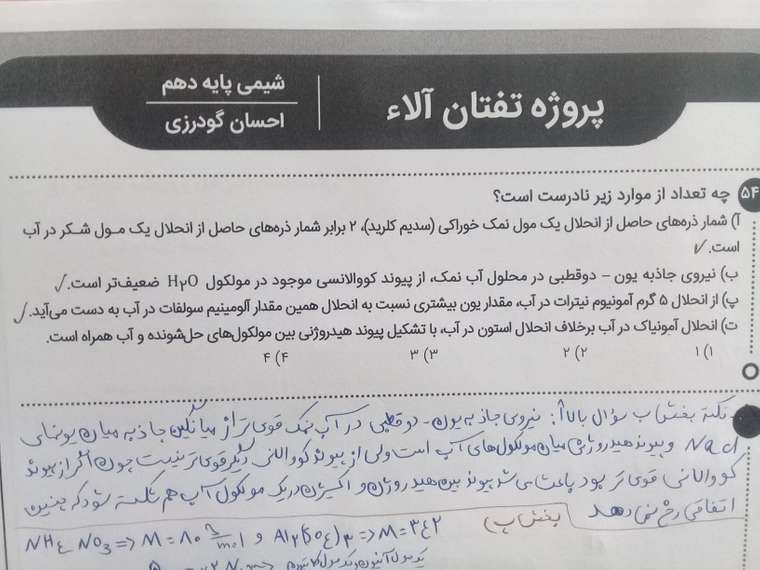 شیمی پایه دهم
احسان گودرزی
پروژه تفتان آلاء
۵۴ چه تعداد از موارد زیر نادرست است؟
آ) شمار ذره‌های حاصل از انحلال یک مول نمک خوراکی (سدیم کلرید)، ۲ برابر شمار ذره‌های حاصل از انحلال یک مـول شـکر در آب
است. ✓
ب) نیروی جاذبه یون – دوقطبی در محلول آب نمک، از پیوند کووالانسی موجود در مولکول H۲O ضعیف‌تر است. ✓
پ) از انحلال ۵ گرم آمونیوم نیترات در آب، مقدار یون بیشتری نسبت به انحلال همین مقدار آلومینیم سولفات در آب به دست می‌آید. ✓
ت) انحلال آمونیاک در آب برخلاف انحلال استون در آب، با تشکیل پیوند هیدروژنی بین مولکول‌های حل‌شونده و آب همراه است.
۱) ۱ ۲) ۲ ۳) ۳ ۴) ۴
نکته بخش ب سؤال بالا: نیروی جاذبه یون - دوقطبی در آب نمک قوی‌تر از میانگین جاذبه میان یونهای
NaCl و پیوند هیدروژنی میان مولکول‌های آب است ولی از پیوند کووالانسی دیگر قوی‌تر نیست چون اگر از پیوند
کووالانسی قوی‌تر بود باعث می‌شد پیوند بین هیدروژن و اکسیژن در یک مولکول آب هم شکسته شود که چنین
اتفاقی رخ نمی‌دهد
بخش پ) NH۴NO۳ => M = ۸۰ g/mol و Al۲(SO۴)۳ => M = ۳۴۲